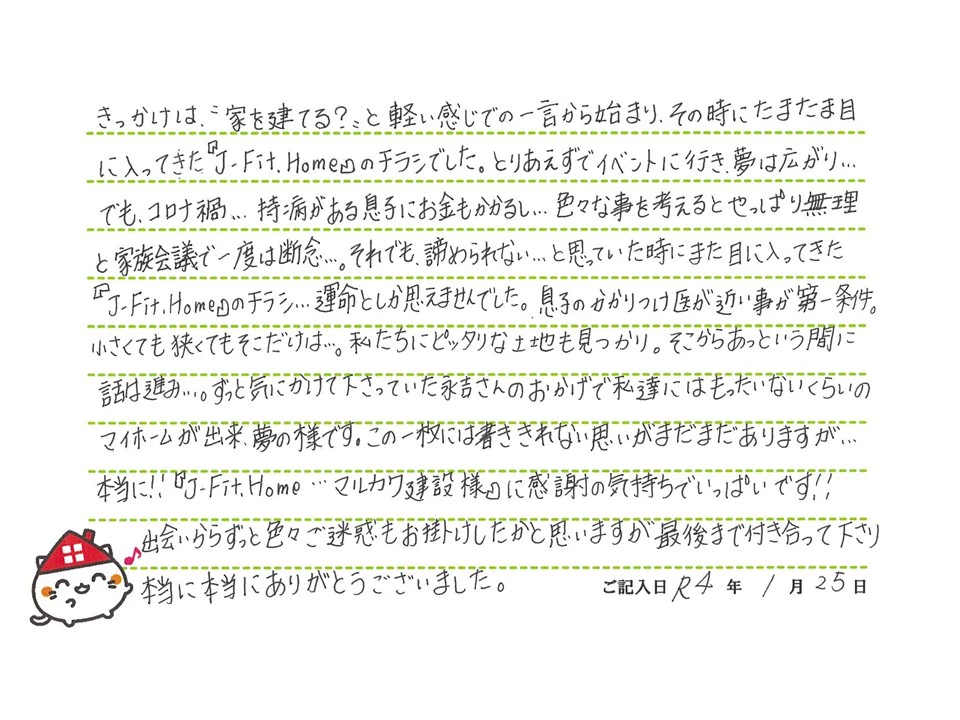 きっかけは、〝家を建てる？〟と軽い感じでの一言から始まり、その時にたまたま目
に入ってきた『J-Fit.Home』のチラシでした。とりあえずでイベントに行き、夢は広がり…
でも、コロナ禍…持病がある息子にお金もかかるし…色々な事を考えるとやっぱり無理
と家族会議で一度は断念…。それでも、諦められない…と思っていた時にまた目に入ってきた
『J-Fit.Home』のチラシ…運命としか思えませんでした。息子のかかりつけ医が近い事が第一条件。
小さくても狭くてもそこだけは…。私たちにピッタリな土地も見つかり。そこからあっという間に
話は進み…。ずっと気にかけて下さっていた永吉さんのおかげで私達にはもったいないくらいの
マイホームが出来、夢の様です。この一枚には書ききれない思いがまだまだありますが…
本当に!!『J-Fit.Home…マルカワ建設様』に感謝の気持ちでいっぱいです!!
出会いからずっと色々ご迷惑もお掛けしたかと思いますが最後まで付き合って下さり
本当に本当にありがとうございました。 ご記入日 R4 年 1 月 25 日